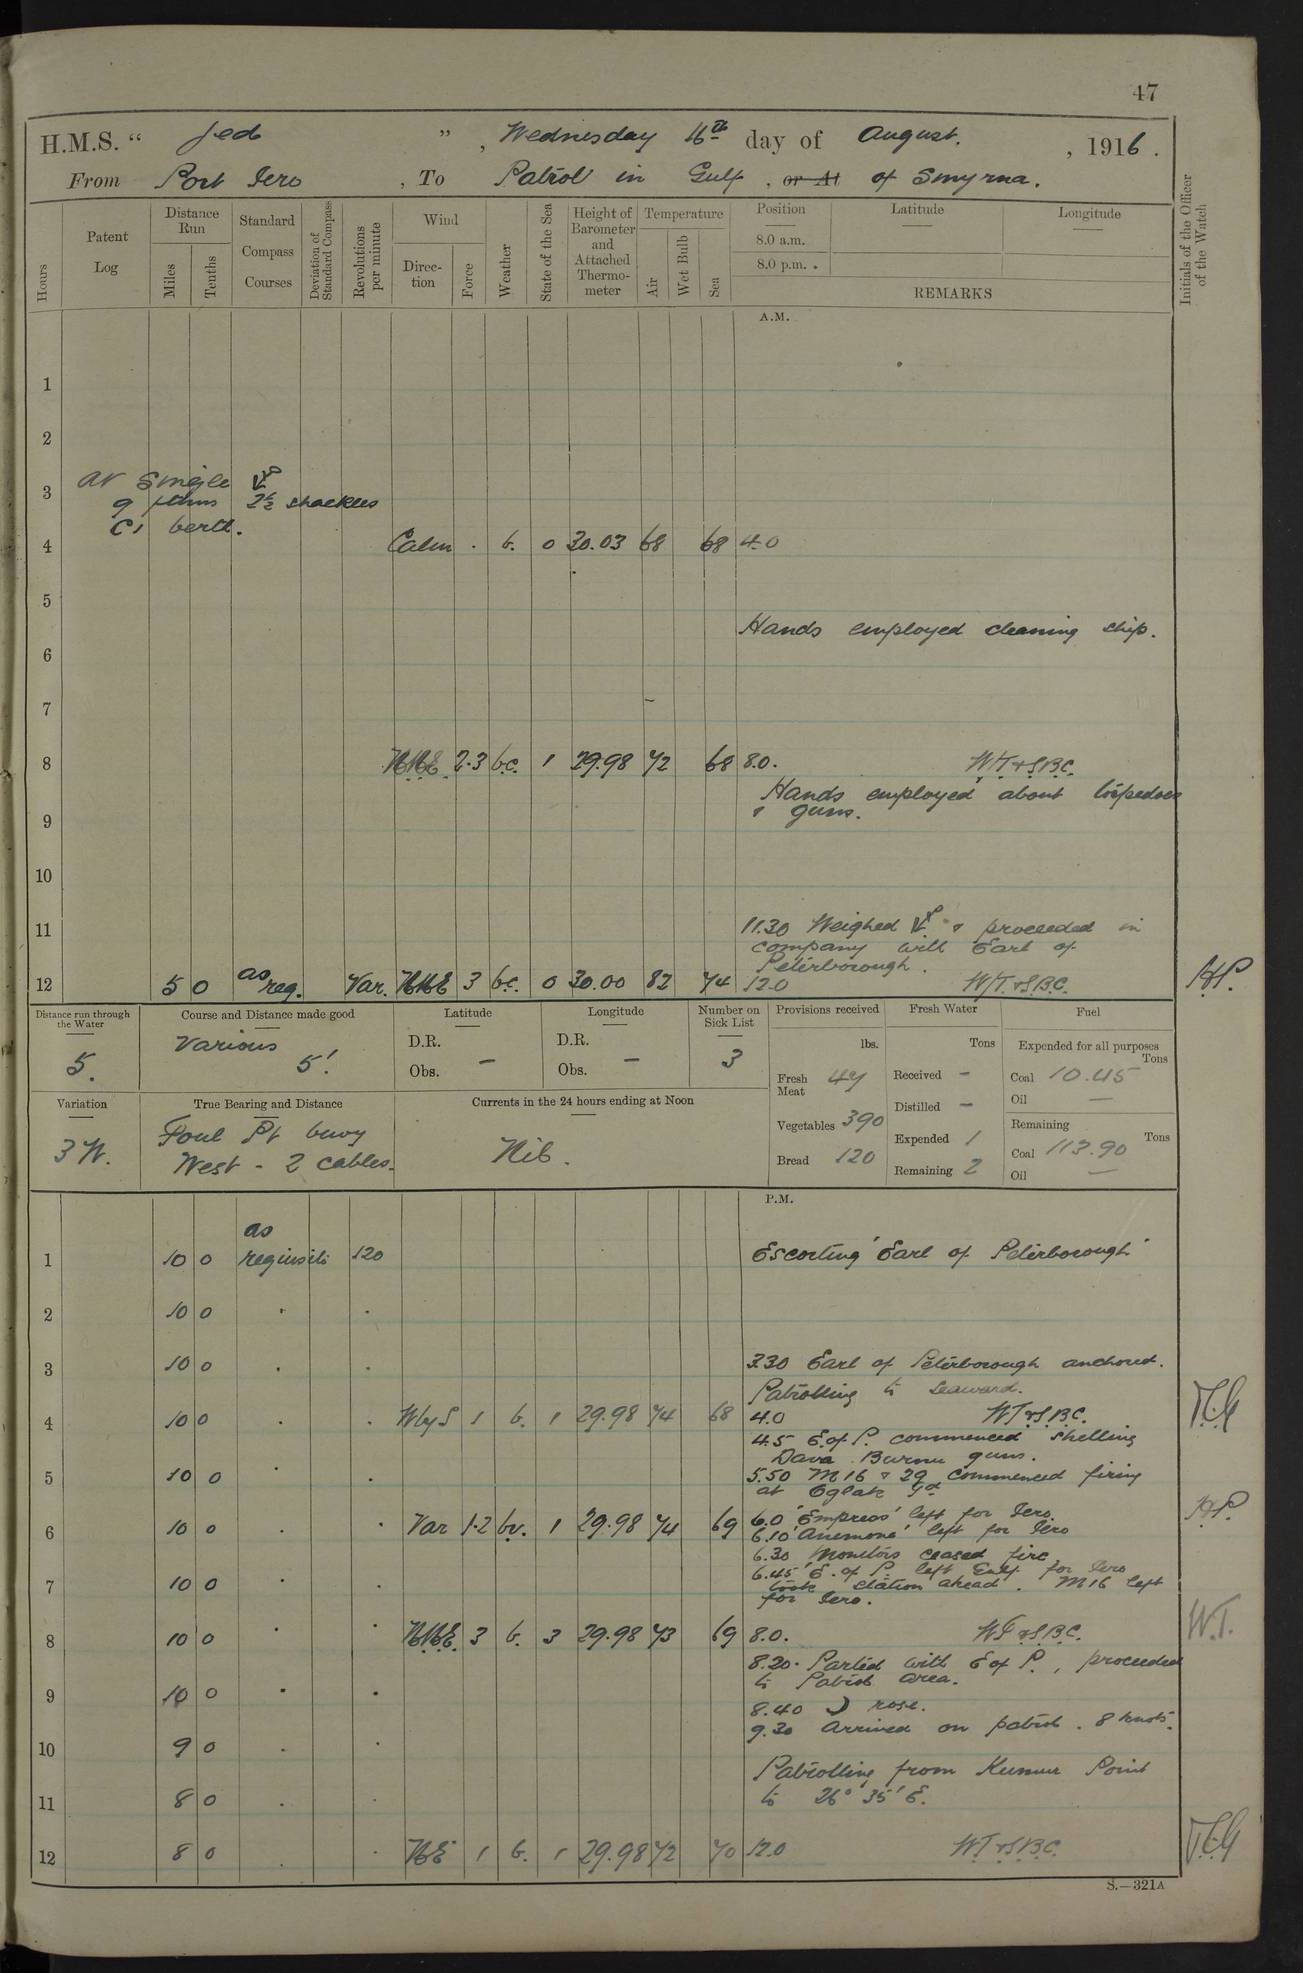 47
H.M.S. "Jed", Wednesday 16th day of August, 1916.
From Port Iero, To Patrol in Gulf, or At of Smyrna.
Hours
Patent Log
Distance Run
Miles
Tenths
Standard Compass Courses
Deviation of Standard Compass
Revolutions per minute
Wind
Direction
Force
Weather
State of the Sea
Height of Barometer and Attached Thermometer
Temperature
Air
Wet Bulb
Sea
Position
8.0 a.m.
8.0 p.m.
Latitude
Longitude
REMARKS
Initials of the Officer of the Watch
A.M.
1
2
At Single
3 9 fthms 2½ shackles
C1 berth.
4 Calm . b. 0 30.03 68 68 4.0
5
Hands employed cleaning ship.
6
7
8 N.N.E. 2.3 b.c. 1 29.98 72 68 8.0. W/T & S.B.C.
Hands employed about torpedoes
9 & guns.
10
11 11.30 Weighed & proceeded in
company with Earl of
Peterborough.
12 5 0 as req. Var. N.N.E 3 b.c. 0 30.00 82 74 12.0 W/T. & S.B.C. H.P.
Distance run through the Water
5.
Course and Distance made good
Various 5'.
Latitude
D.R.
Obs. -
Longitude
D.R.
Obs. -
Number on Sick List
3
Provisions received
lbs.
Fresh Meat 49
Vegetables 390
Bread 120
Fresh Water
Tons
Received -
Distilled -
Expended 1
Remaining 2
Fuel
Expended for all purposes
Tons
Coal 10.45
Oil -
Remaining
Tons
Coal 113.90
Oil -
Variation
3 W.
True Bearing and Distance
Foul Pt buoy
West - 2 cables.
Currents in the 24 hours ending at Noon
Nil.
P.M.
as
1 10 0 requisite 120 Escorting 'Earl of Peterborough'
2 10 0 " "
3 10 0 " " 3.30 Earl of Peterborough anchored.
Patrolling to Seaward.
4 10 0 " " W by S 1 b. 1 29.98 74 68 4.0 W/T & S.B.C.
4.5 E. of P. commenced shelling
Dava Burnu guns.
5 10 0 " " 5.50 M16 & 29 commenced firing
at
6 10 0 " " Var 1.2 bv. 1 29.98 74 69 6.0 'Empress' left for Iero. H.P.
6.10 'Anemone' left for Iero
6.30 Monitors ceased fire
6.45 E. of P. left Gulf for Iero
7 10 0 " " took station ahead. M16 left
for Iero.
8 10 0 " " N.N.E. 3 b. 3 29.98 73 69 8.0. W/T & S.B.C. W.T.
8.20. Parted with E of P., proceeded
to Patrol area.
9 10 0 " " 8.40 ☽ rose.
9.30 Arrived on patrol. 8 knots.
10 9 0 " "
Patrolling from Kumur Point
11 8 0 " " to 26° 35' E.
12 8 0 " " N.E. 1 b. 1 29.98 72 70 12.0 W/T & S.B.C.
S.—321A